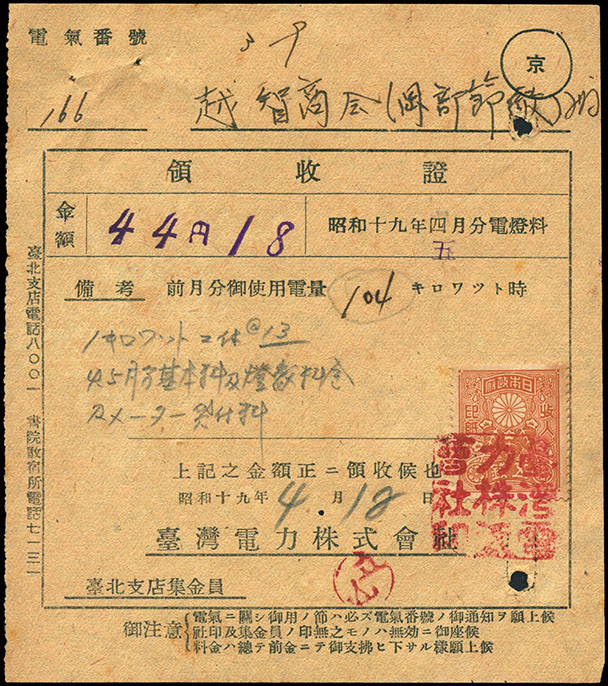 電氣番號
39
京
166
越智商会(岡部鈴
領收證
金額
44円18
昭和十九年四月分電燈料
五
備考
前月分御使用電量
104
キロワツト時
1キロワット二付@13
4.5月分基本料及燈数料金
及メーター
日本政府
收
印
上記之金額正ニ領收候也
昭和十九年4.月18日
臺灣電力株式會社
臺北支店集金員
御注意
電氣ニ關シ御用ノ節ハ必ズ電氣番號ノ御通知ヲ願上候
社印及集金員ノ印無之モノハ無効ニ御座候
料金ハ總テ前金ニテ御支拂ヒ下サル樣願上候
臺北支店電話八〇〇一
書院散宿所電話七一三一